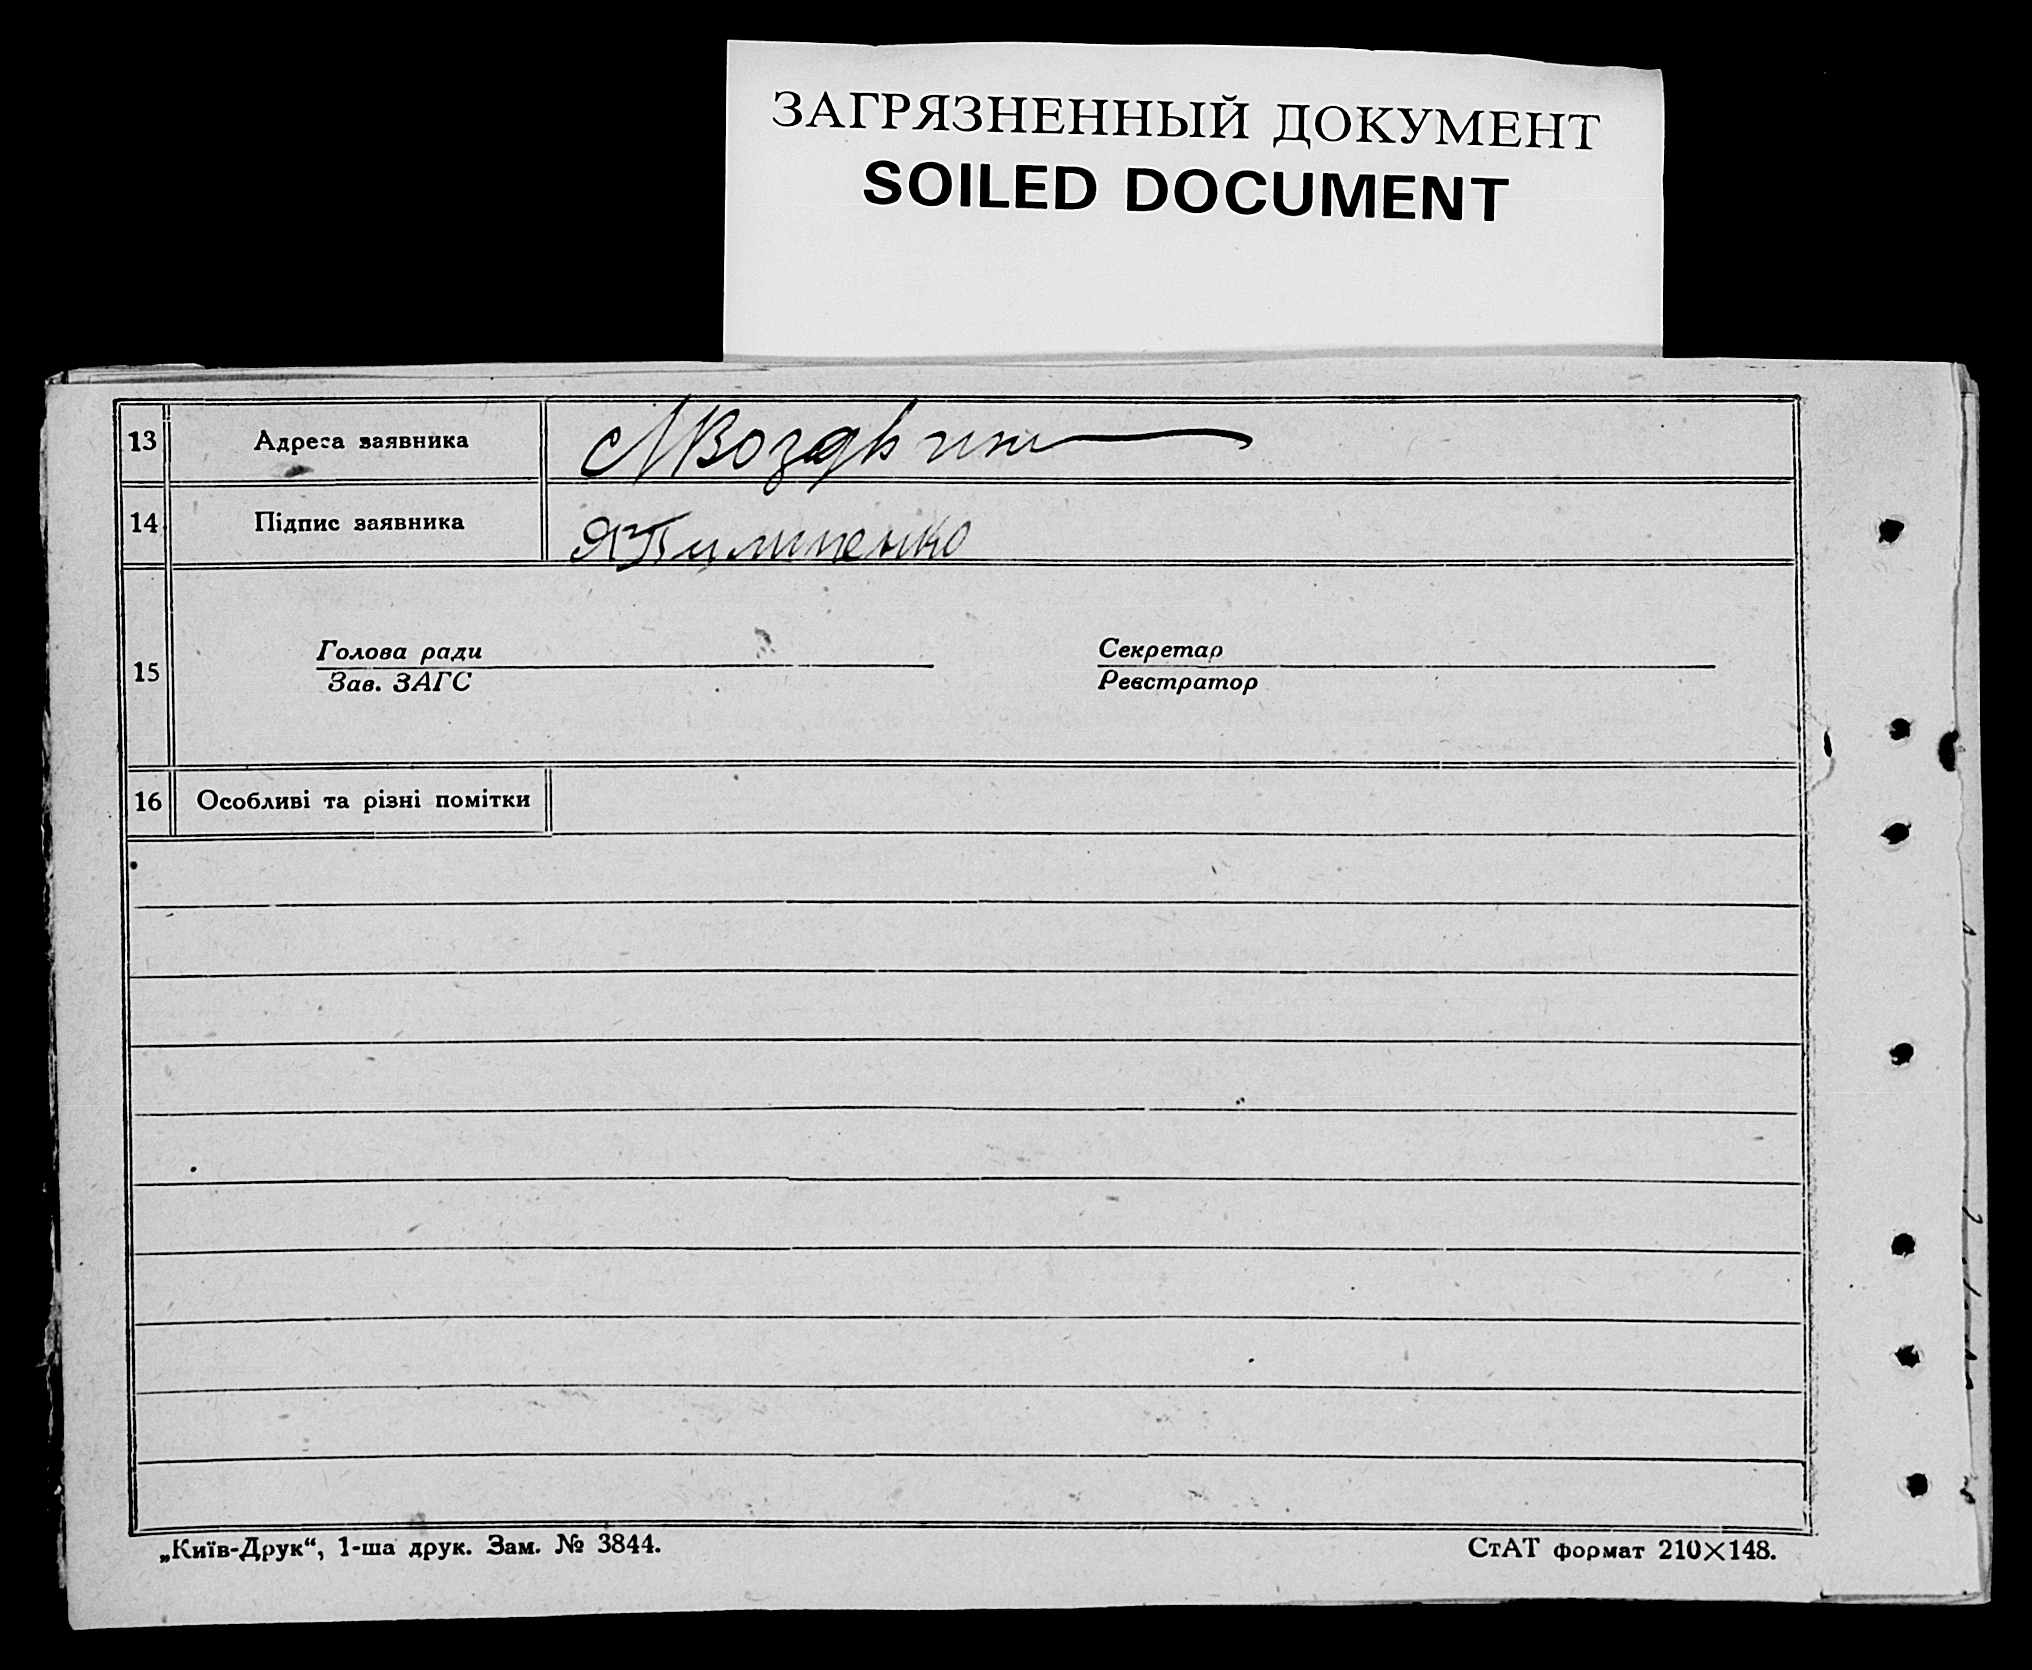 ЗАГРЯЗНЕННЫЙ ДОКУМЕНТ
SOILED DOCUMENT
13 Адреса заявника
14 Підпис заявника
Голова ради Секретар
15
Зав. ЗАГС Реєстратор
16 Особливі та різні помітки
„Київ-Друк“, 1-ша друк. Зам. № 3844. СтАТ формат 210×148.